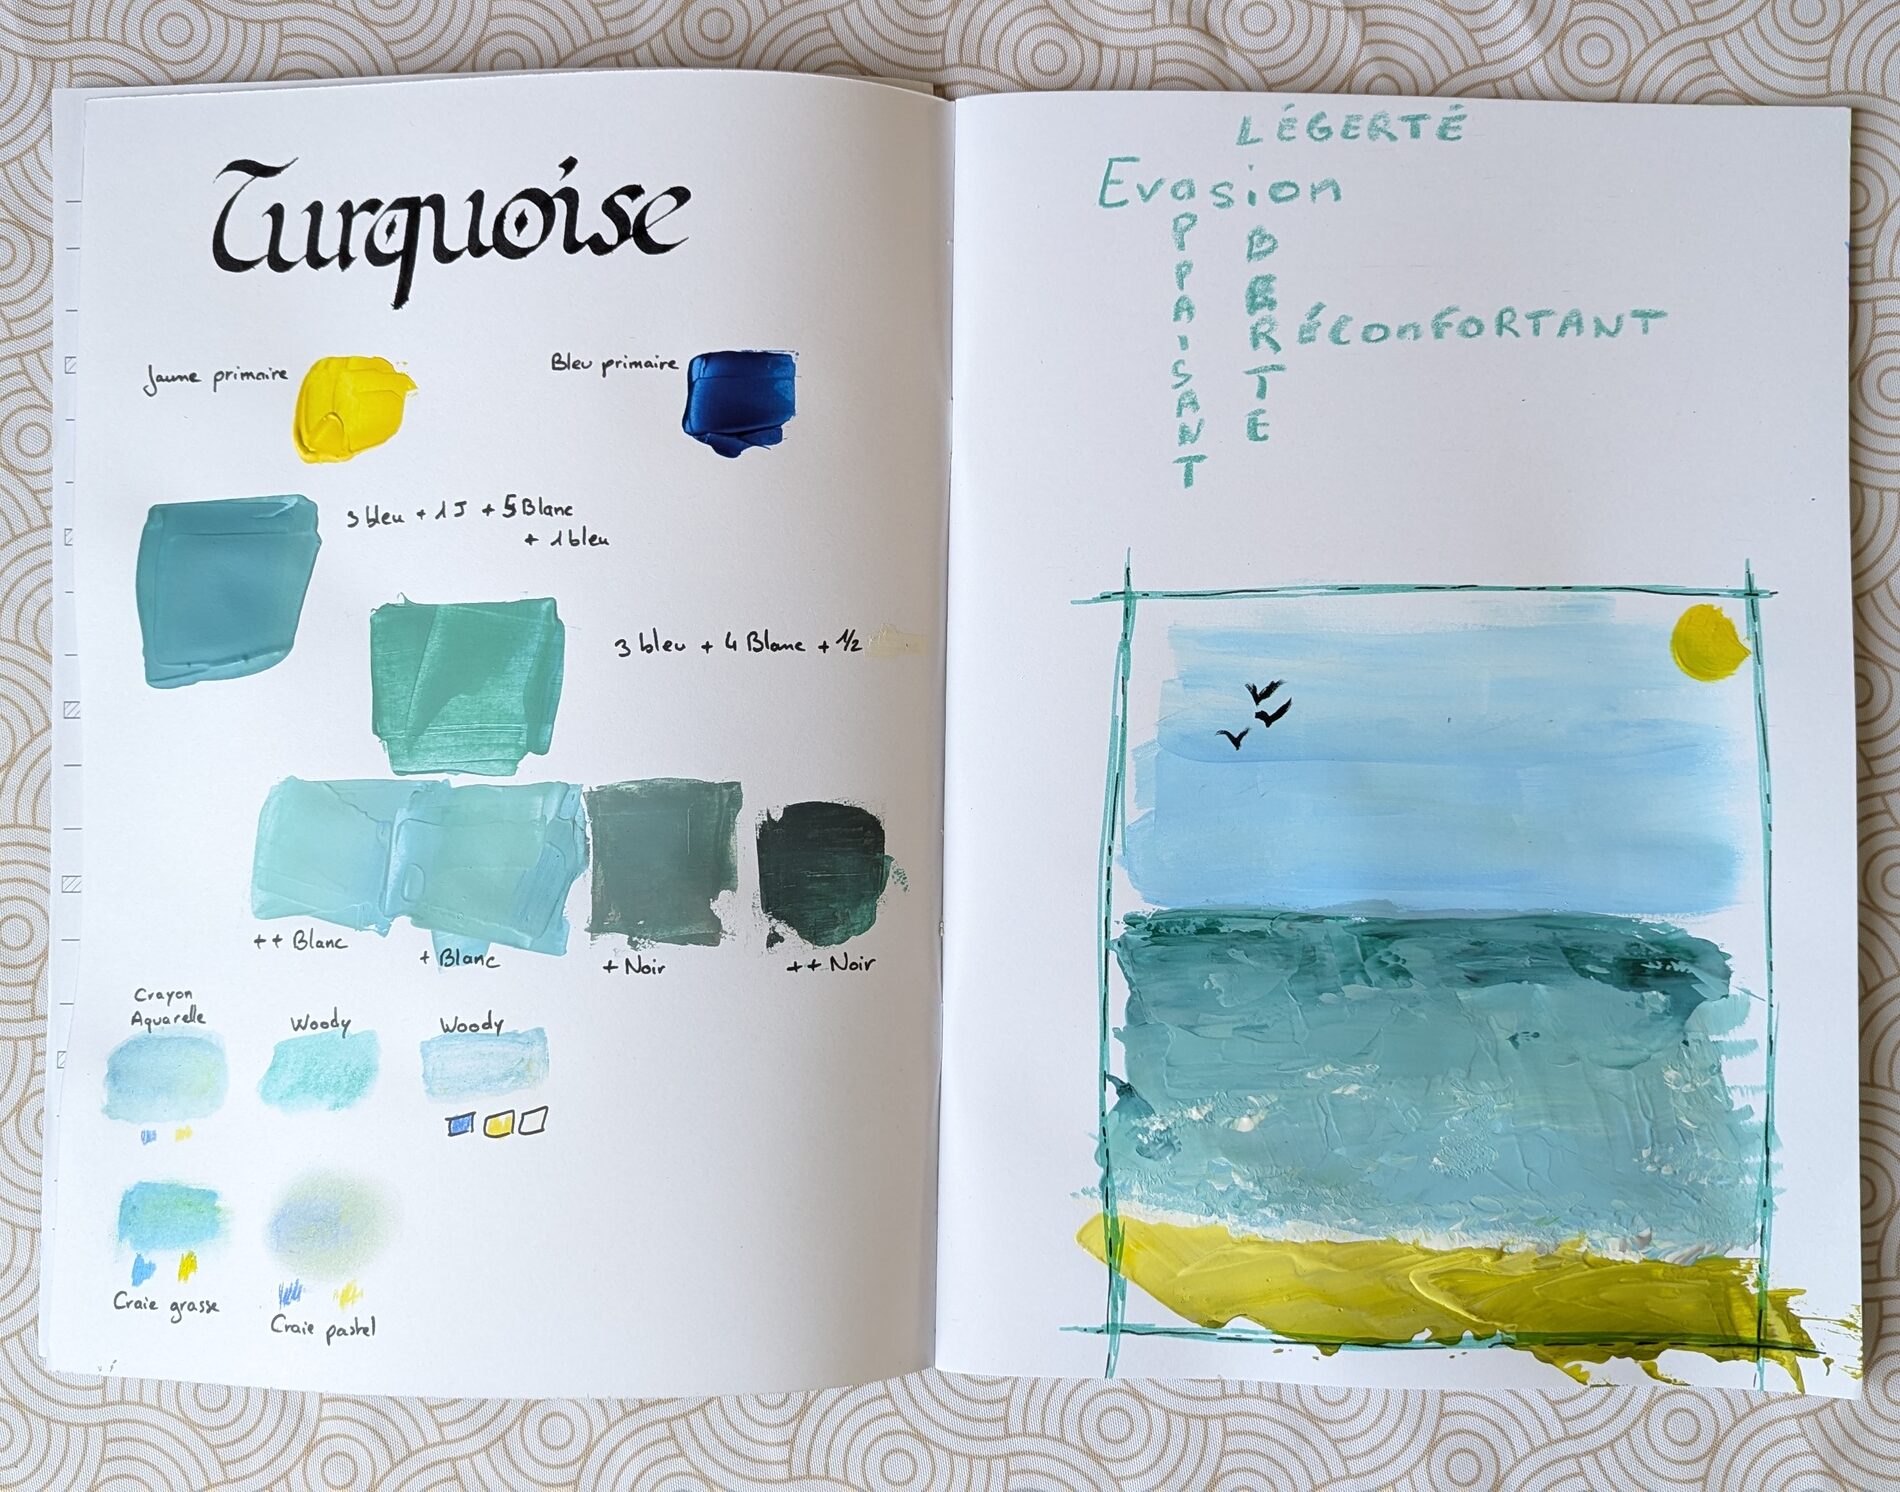 Turquoise
Jaune primaire
Bleu primaire
3 bleu + 1 J + 5 Blanc
+ 1 bleu
3 bleu + 4 Blanc + 1/2
++ Blanc
+ Blanc
+ Noir
++ Noir
Crayon
Aquarelle
Woody
Woody
Craie grasse
Craie pastel
LÉGERTÉ
Evasion
APPAISANT
LiBERTE
RÉCONFORTANT